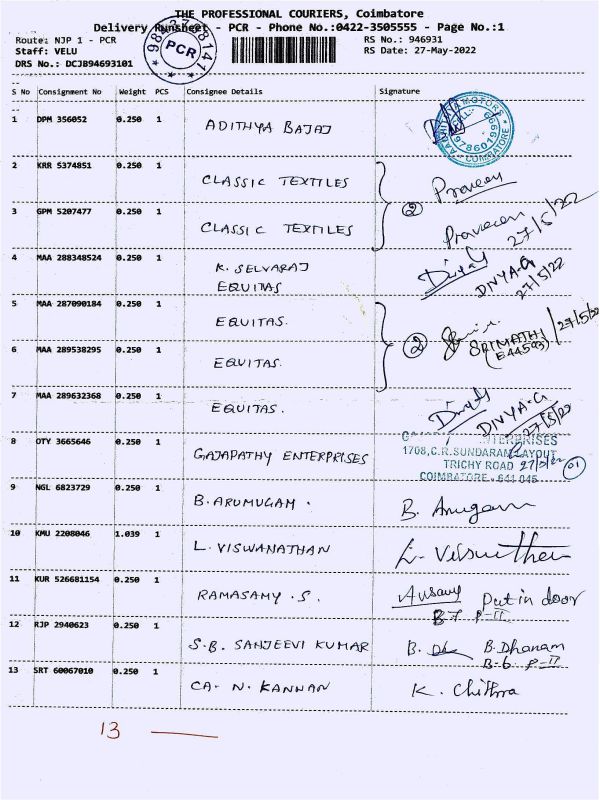 THE PROFESSIONAL COURIERS, Coimbatore
Delivery Runsheet - PCR - Phone No.:0422-3505555 - Page No.:1
Route: NJP 1 - PCR
RS No.: 946931
Staff: VELU
RS Date: 27-May-2022
DRS No.: DCJB94693101
PCR
S No Consignment No Weight PCS Consignee Details Signature
1 DPM 356052 0.250 1 ADITHYA BAJAJ
COIMBATORE
2 KRR 5374851 0.250 1 CLASSIC TEXTILES
2 Praveen
3 GPM 5207477 0.250 1 CLASSIC TEXTILES
Praveen
27/5/22
4 MAA 288348524 0.250 1 K. SELVARAJ
EQUITAS
DIVYA-G
27/5/22
5 MAA 287090184 0.250 1 EQUITAS.
2 SRIMATHI 27/5/22
(E44593)
6 MAA 289538295 0.250 1 EQUITAS.
7 MAA 289632368 0.250 1 EQUITAS.
DIVYA-G
27/5/22
8 OTY 3665646 0.250 1 GAJAPATHY ENTERPRISES
ENTERPRISES
1708,C.R.SUNDARAM LAYOUT
TRICHY ROAD 27/5/22 01
COIMBATORE - 641 045
9 NGL 6823729 0.250 1 B. ARUMUGAM .
B. Arugam
10 KMU 2208046 1.039 1 L. VISWANATHAN
11 KUR 526681154 0.250 1 RAMASAMY . S.
Put in door
B-7 P-II
12 RJP 2940623 0.250 1 S.B. SANJEEVI KUMAR
B. Dhanam
B-6 P-II
13 SRT 60067010 0.250 1 CA- N. KANNAN
K. Chithra
13